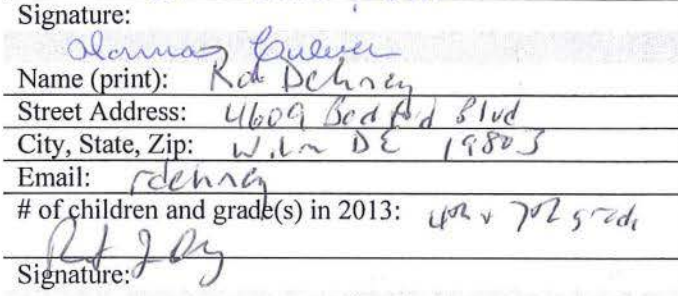 Signature:
Name (print): Rob Dehney
Street Address: 4609 Bedford Blvd
City, State, Zip: Wilm DE 19803
Email: rdehney
# of children and grade(s) in 2013: 4th & 7th grade
Signature: